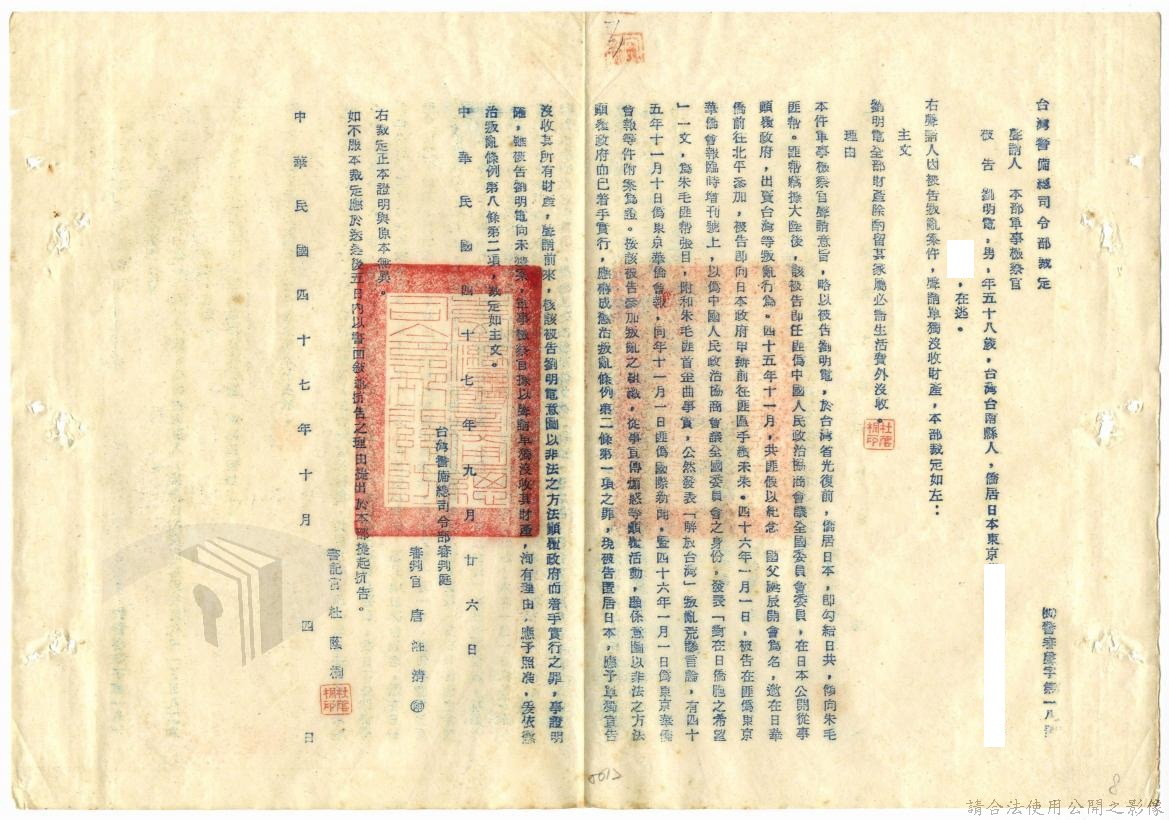 台灣警備總司令部裁定
警審聲字第一八號
聲請人　本部軍事檢察官
被告　劉明電，男，年五十八歲，台灣台南縣人，僑居日本東京
，在逃。
右聲請人因被告叛亂案件，聲請單獨沒收財產，本部裁定如左：
主文
劉明電全部財產除酌留其家屬必需生活費外沒收。
理由
本件軍事檢察官聲請意旨，略以被告劉明電，於台灣省光復前，僑居日本，即勾結日共，傾向朱毛
匪幫。匪幫竊據大陸後，該被告即任匪偽中國人民政治協商會議全國委員會委員，在日本公開從事
顛覆政府，出賣台灣等叛亂行為。四十五年十一月，共匪假以紀念　國父誕辰開會為名，邀在日華
僑前往北平參加，被告即向日本政府申辦前往匪區手續未准。四十六年一月一日，被告在匪偽東京
華僑會報臨時增刊號上，以偽中國人民政治協商會議全國委員會之身份，發表「對在日僑胞之希望
」一文，為朱毛匪幫張目，附和朱毛匪首歪曲事實，公然發表「解放台灣」叛亂荒謬言論，有四十
五年十一月十日偽東京華僑會報，同年十一月一日匪偽國際新聞，暨四十六年一月一日偽東京華僑
會報等件附案為證。按該被告參加叛亂之組織，從事宣傳煽惑等顛覆活動，顯係意圖以非法之方法
顛覆政府而已着手實行，應構成懲治叛亂條例第二條第一項之罪，現被告匿居日本，應予單獨宣告
沒收其所有財產，聲請前來，核該被告劉明電意圖以非法之方法顛覆政府而着手實行之罪，事證明
確，雖被告劉明電向未獲案，軍事檢察官據以聲請單獨沒收其財產，洵有理由，應予照准，爰依懲
治叛亂條例第八條第二項，裁定如主文。
中華民國四十七年九月廿六日
台灣警備總司令部審判庭
審判官　唐湘清
右裁定正本證明與原本無異。
如不服本裁定應於送達後五日內以書面敘述抗告之理由提出於本部提起抗告。
書記官　杜蔭桐
中華民國四十七年十月四日
8
請合法使用公開之影像